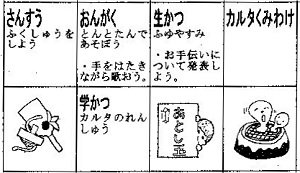 さんすう
ふくしゅうを
しよう
おんがく
とんとたんで
あそぼう
・手をはたき
ながら歌おう。
生かつ
ふゆやすみ
・お手伝いに
ついて発表し
よう。
カルタくみわけ
学かつ
カルタのれん
しゅう
あとし玉